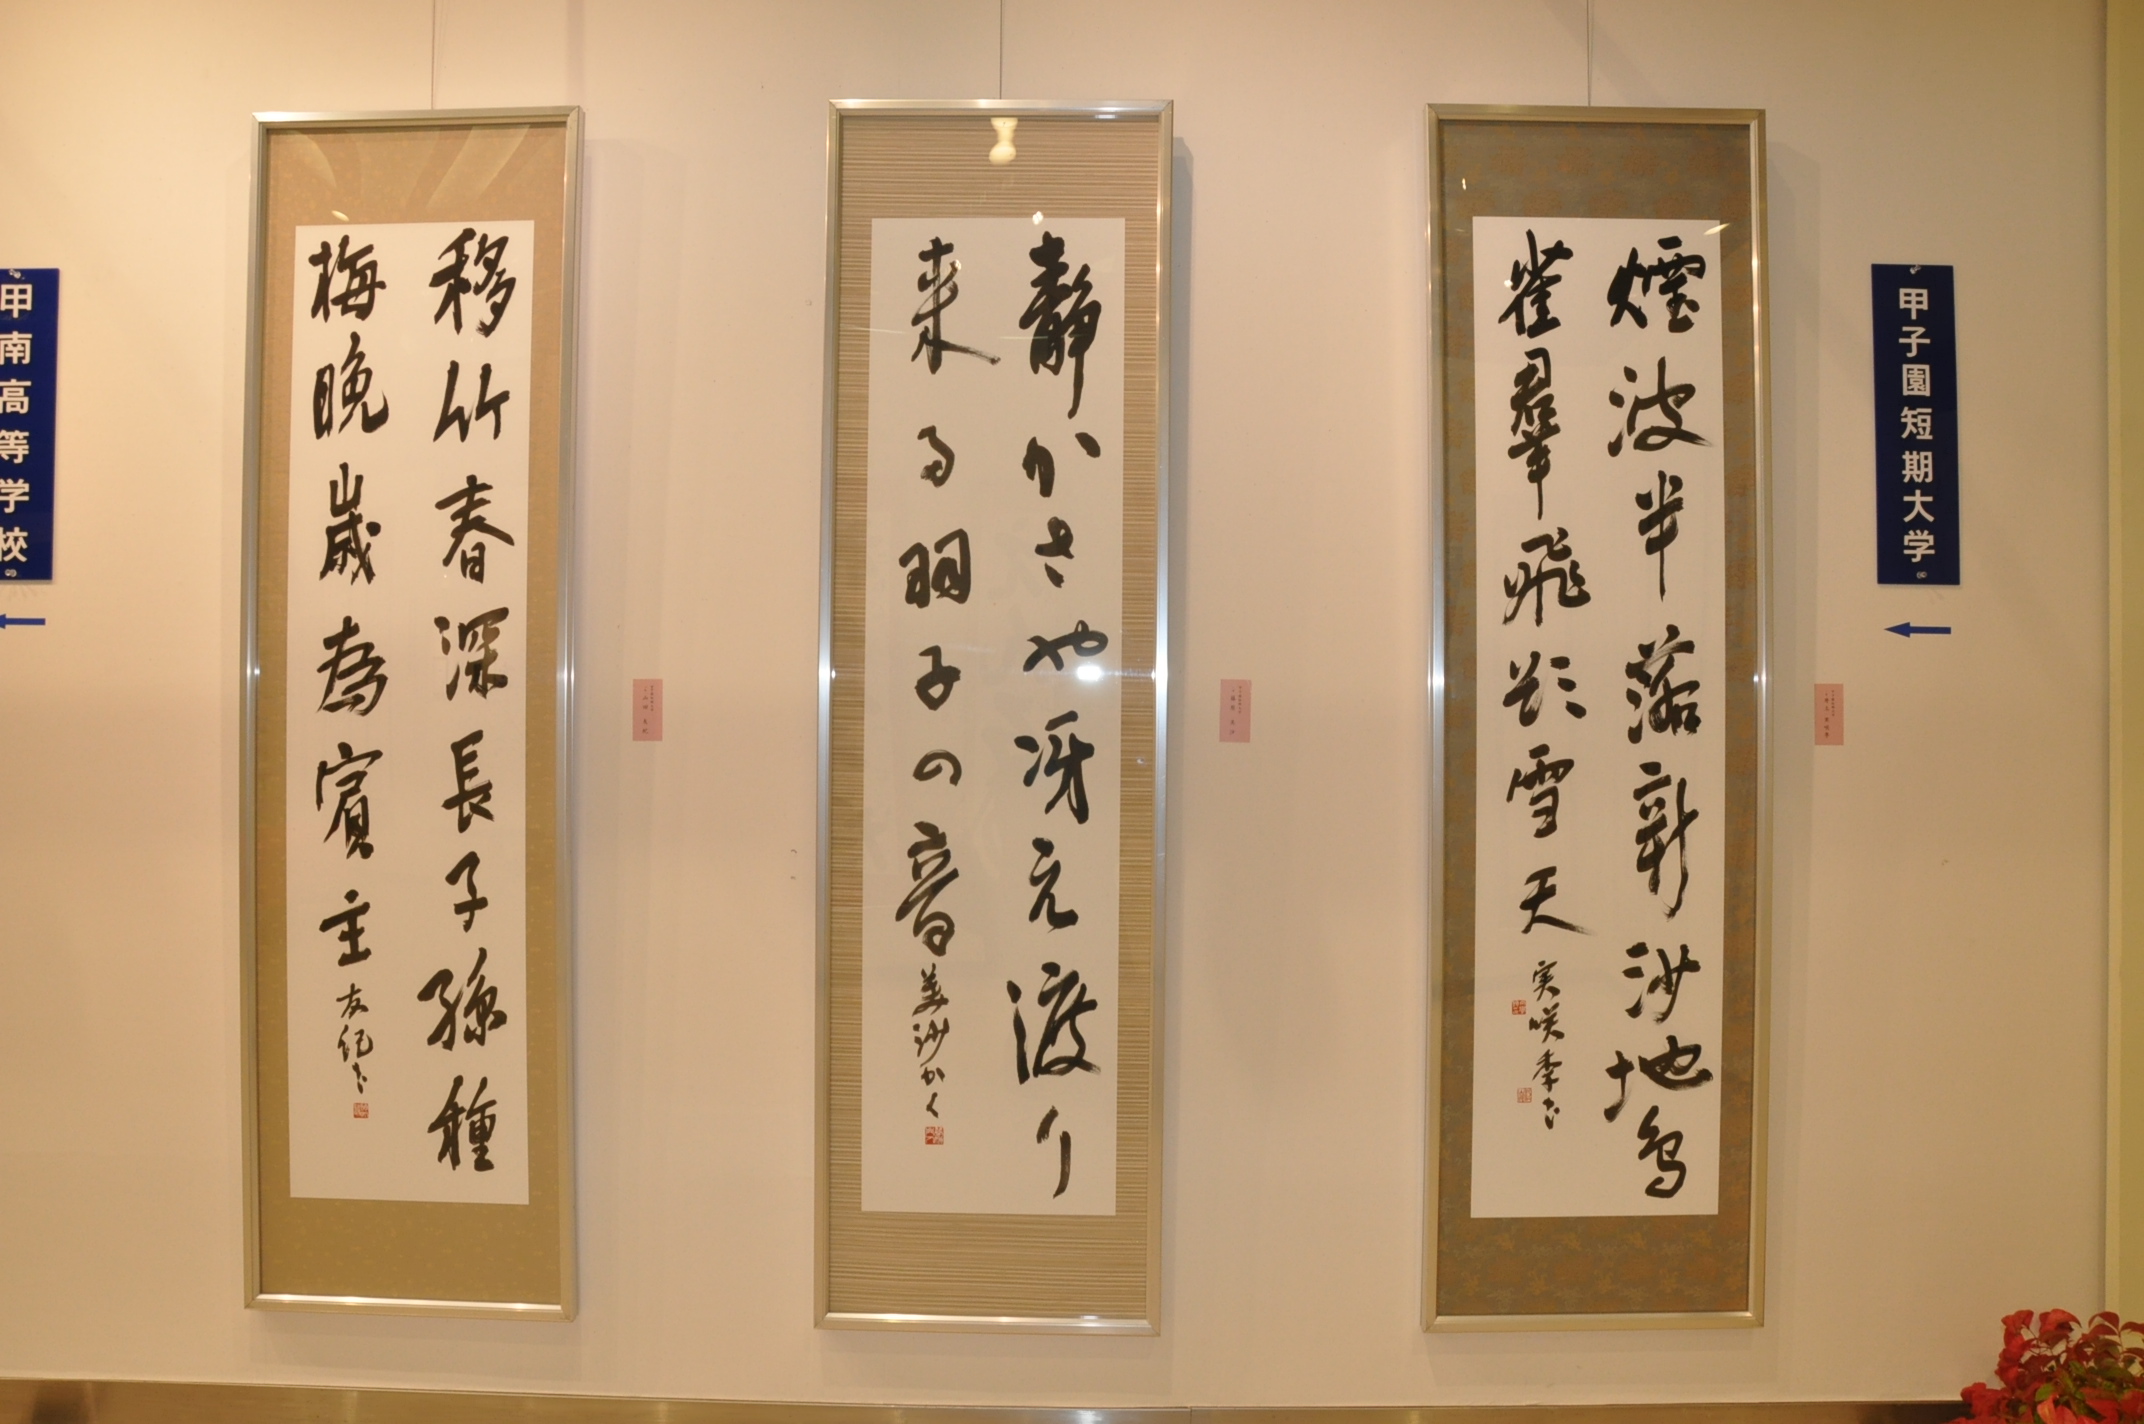 甲子園短期大学
煙波半落新沙地鳥
雀羣飛欲雪天
実咲季書
静かさや冴え渡り
来る羽子の音
美沙かく
移竹春深長子孫種
梅晩歳為賓主
友紀書
甲南高等学校